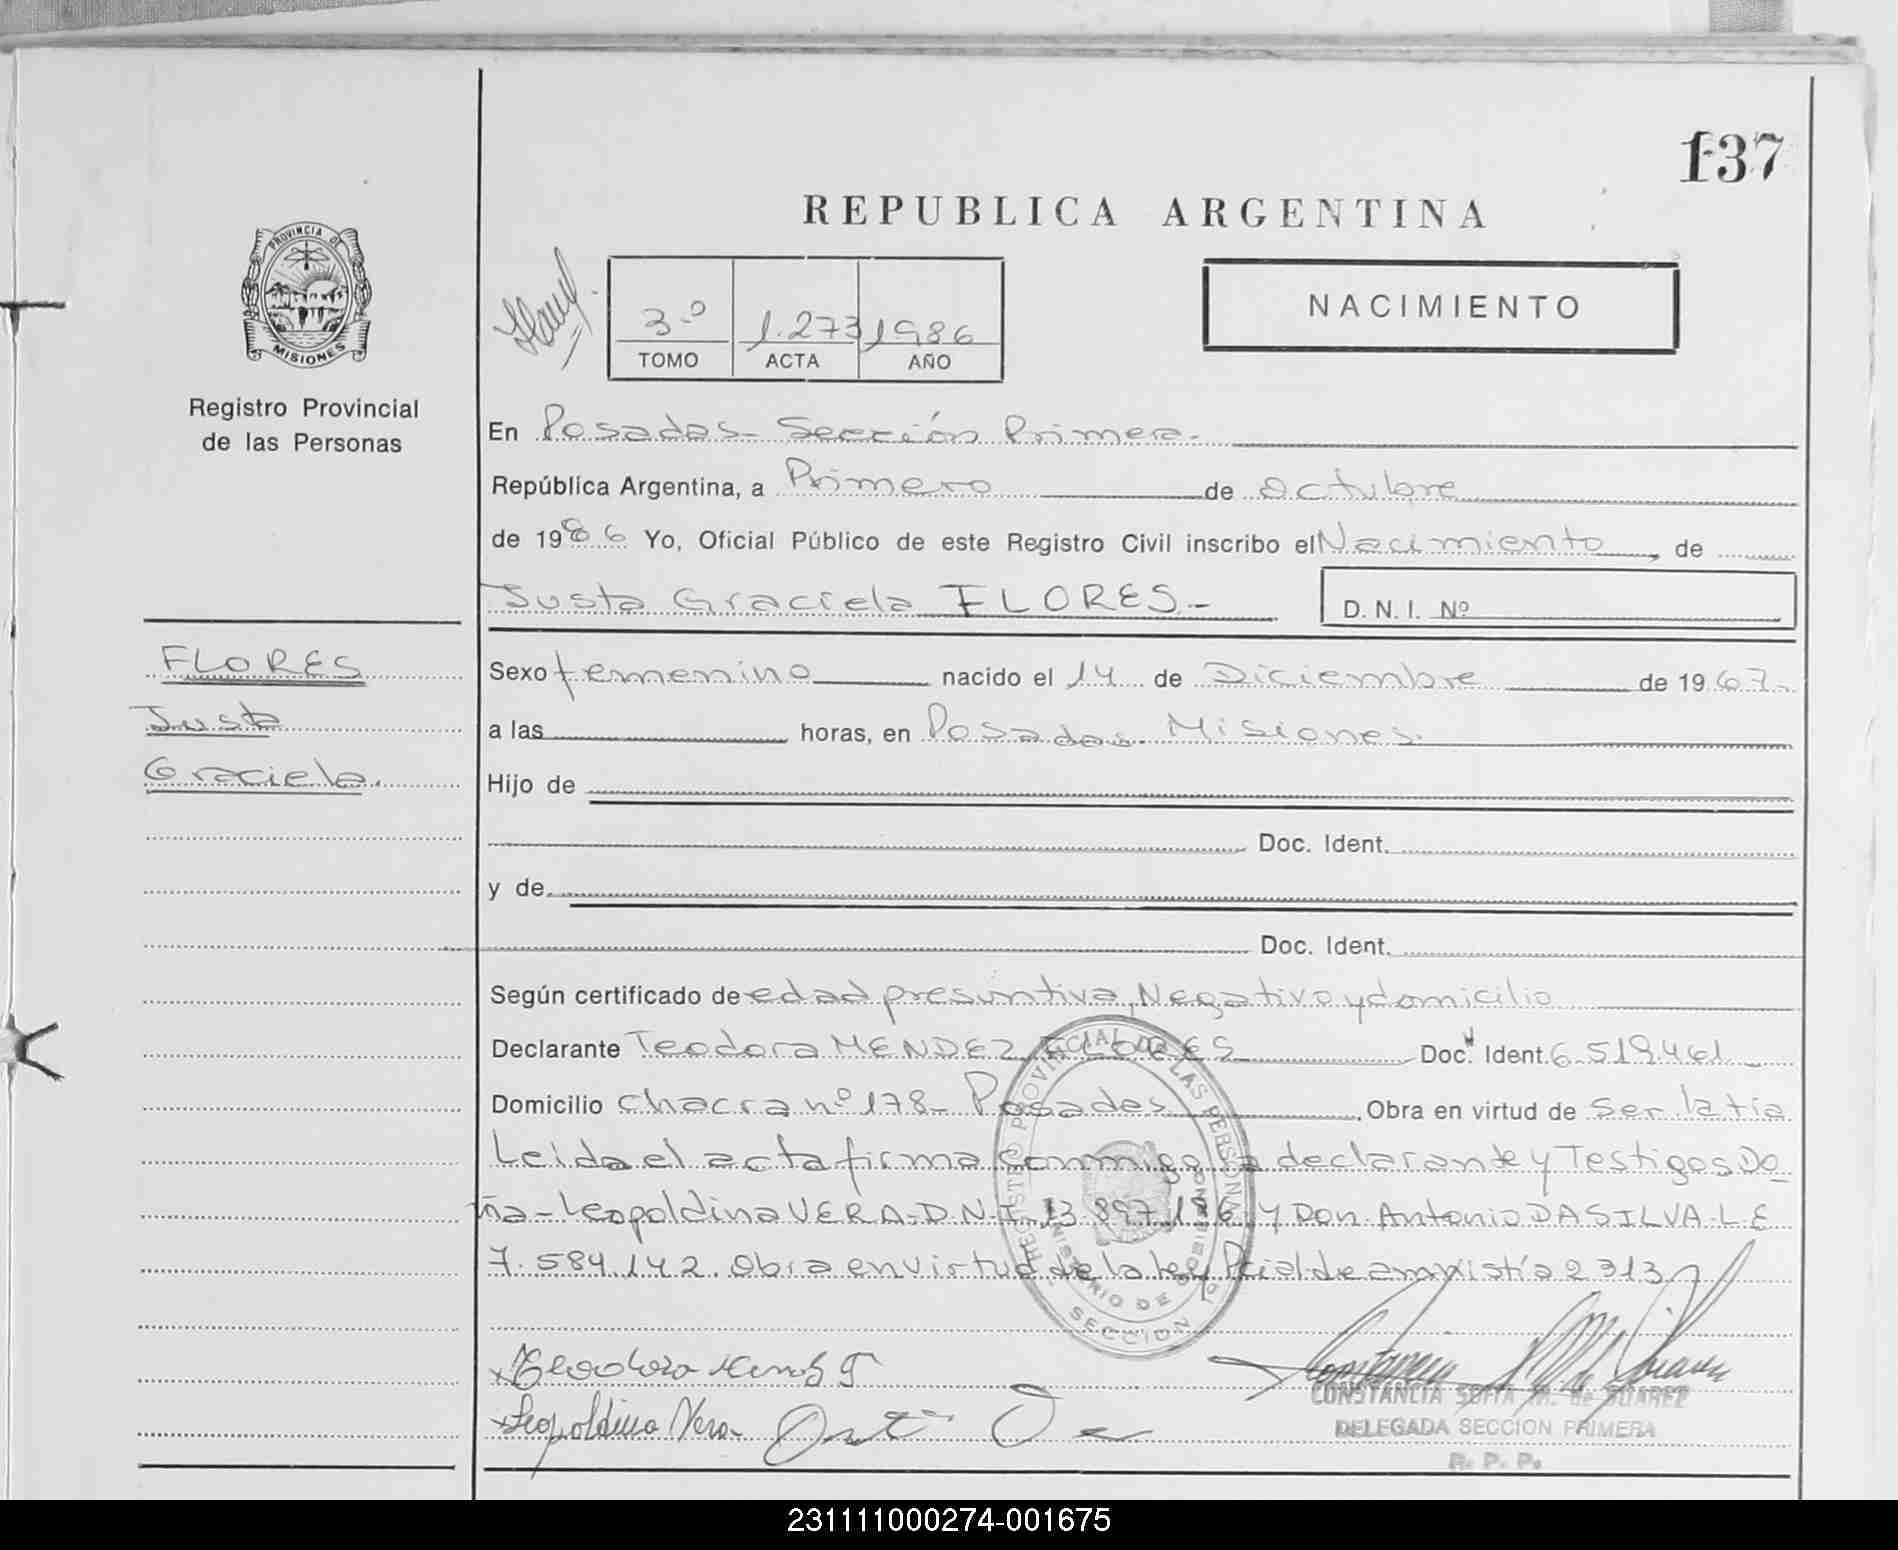 137
REPUBLICA ARGENTINA
PROVINCIA DE
MISIONES
Registro Provincial
de las Personas
3.º 1.273 1986
TOMO ACTA AÑO
NACIMIENTO
En Posadas - Sección Primera.
República Argentina, a Primero de Octubre
de 1986 Yo, Oficial Público de este Registro Civil inscribo el Nacimiento, de
Justa Graciela FLORES.-
D. N. I. Nº
FLORES
Justa
Graciela.
Sexo femenino nacido el 14 de Diciembre de 1967.
a las horas, en Posadas. Misiones.
Hijo de
Doc. Ident.
y de
Doc. Ident.
Según certificado de edad presuntiva, Negativo y domicilio
Declarante Teodora MENDEZ FLORES Doc. Ident. 6.519.461
Domicilio Chacra nº 178- Posadas, Obra en virtud de Ser la tía
Leida el acta firma conmigo la declarante y Testigos Do
ña - Leopoldina VERA - D.N.I. 13.897.186 y Don Antonio DA SILVA - L.E
7.584.142. Obra en virtud de la ley Pcial de amnistía 2313
REGISTRO PROVINCIAL DE LAS PERSONAS
MINISTERIO DE GOBIERNO
SECCION 1º
Leopoldina Vera
CONSTANCIA SOFIA M. de SUAREZ
DELEGADA SECCION PRIMERA
R. P. P.
231111000274-001675